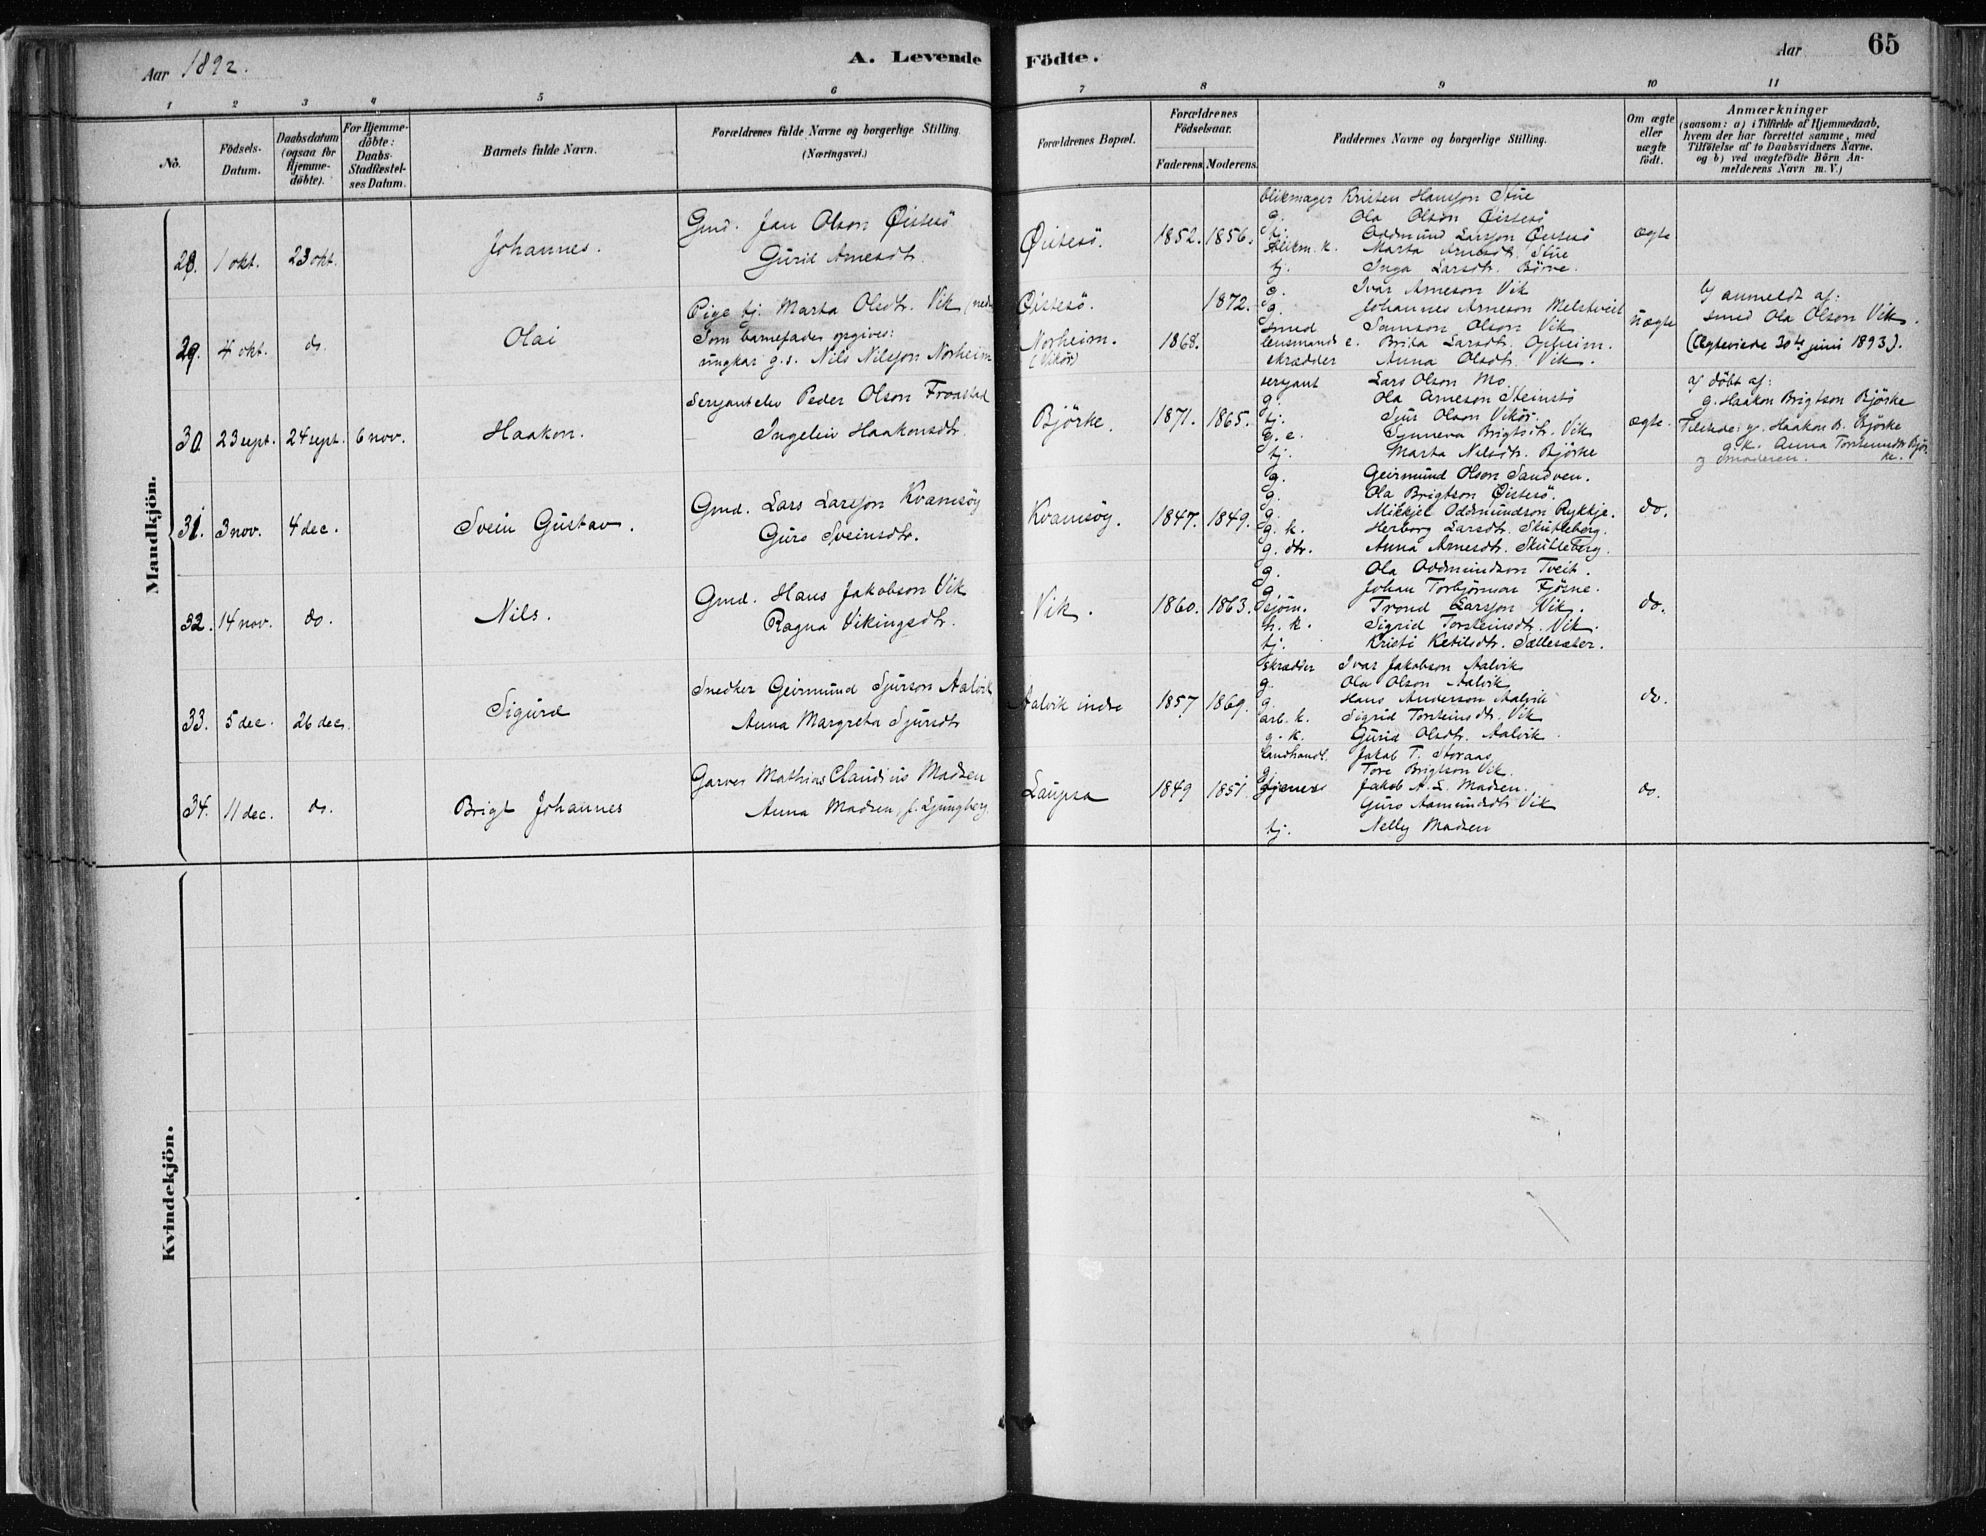 Aar 1892.
A. Levende Födte.
Aar
65
1 2 3 4 5 6 7 8 9 10 11
No.
Födsels-Datum.
Daabsdatum (ogsaa for Hjemme-döbte).
For Hjemme-döbte: Daabs-Stadfæstel-ses Datum.
Barnets fulde Navn.
Forældrenes fulde Navne og borgerlige Stilling. (Næringsvei.)
Forældrenes Bopæl.
Forældrenes Födselsaar.
Faderens. Moderens.
Faddernes Navne og borgerlige Stilling.
Om ægte eller uægte födt.
Anmærkninger
(saasom: a) i Tilfælde af Hjemmedaab,
hvem der har forrettet samme, med
Tilföielse af to Daabsvidners Navne,
og b) ved uægtefödte Börn An-
melderens Navn m. V.)
Mandkjön.
28. 1 okt. 23 okt. Johannes.
Gmd. Jan Olson Øistesö
Gurid Arnesdtr.
Øistesö. 1852. 1856.
blikmager Kristen Hansson Stue
g. Ola Olson Øistesö
tj. Oddmund Larsson Øistesö
blikm. k. Marta Arnesdt. Stue
tj. Inga Larsdtr. Börve.
ægte
29. 4 okt. do. Olai
Pige tj. Marta Olsdtr. Vik
Som barnefader opgives:
ungkar g.s. Nils Nilsson Norheim
Øistesö. 1872.
Norheim. (Vikör) 1868.
g. Ivar Arneson Vik
g. Johannes Arneson Melstveit
smed Samson Olson Vik
lensmands e. Brita Larsdt. Opheim.
skrædder Anna Olsdt. Vik.
uægte
b) anmeldt af:
smed Ola Olson Vik.
(Ægteviede 30te juni 1893).
30. 23 sept. 24 sept. 6 nov. Haakon.
Sergantelev Peder Olson Fraastad
Ingelin Haakonsdt.
Björke. 1871. 1865.
sergant Lars Olson Mo.
g. Ola Arneson Steinstö
tj. Sjur Olson Vikör.
g. e. Synneva Brigtsdt. Vik
tj. Marta Nilsdt. Björke
ægte.
a) döbt af:
g. Haakon Brigtson Björke
Tilstede: g. Haakon B. Björke
g. k. Anna Torsteinsdtr. Björke.
g moderen.
31. 3 nov. 4 dec. Svein Gustav.
Gmd. Lars Larsson Kvamsøy
Guro Sveinsdtr.
Kvamsøy. 1847. 1849.
g. Geirmund Olson Sandven.
g. Ola Brigtson Øistesö.
g. Mikkjel Oddmundson Rykkje.
g. k. Herborg Larsdt. Skutleberg.
g. dtr. Anna Arnesdt. Skutleberg.
do.
32. 14 nov. do. Nils.
Gmd. Hans Jakobson Vik
Ragna Vikingsdt.
Vik. 1860. 1863.
g. Ola Oddmundson Tveit.
g. Johan Torbjörnson Fjösne.
sjöm. Trond Larsson Vik.
h. k. Sigrid Torsteinsdt. Vik.
tj. Kristi Ketilsdt. Sætlesæter.
do.
33. 5 dec. 26 dec. Sigurd
Snedker Geirmund Sjurson Aalvik
Anna Margreta Sjursdt.
Aalvik indre 1857 1869.
skrædder Ivar Jakobson Aalvik
g. Ola Olson Aalvik
g. Hans Anderson Aalvik
arb. k. Sigrid Torsteinsdt. Vik
g. k. Gurid Olsdt. Aalvik.
do.
34. 11 dec. do. Brigt Johannes
Garver Mathias Claudius Madsen
Anna Madsen, f. Ljungberg
Laupsa 1849 1851.
landhandl. Jakob T. Storaas
g. Tore Brigtson Vik.
Jakob A. L. Madsen.
Guro Aamundsdt. Vik
tj. Nelly Madsen
do.
Kvindekjön.